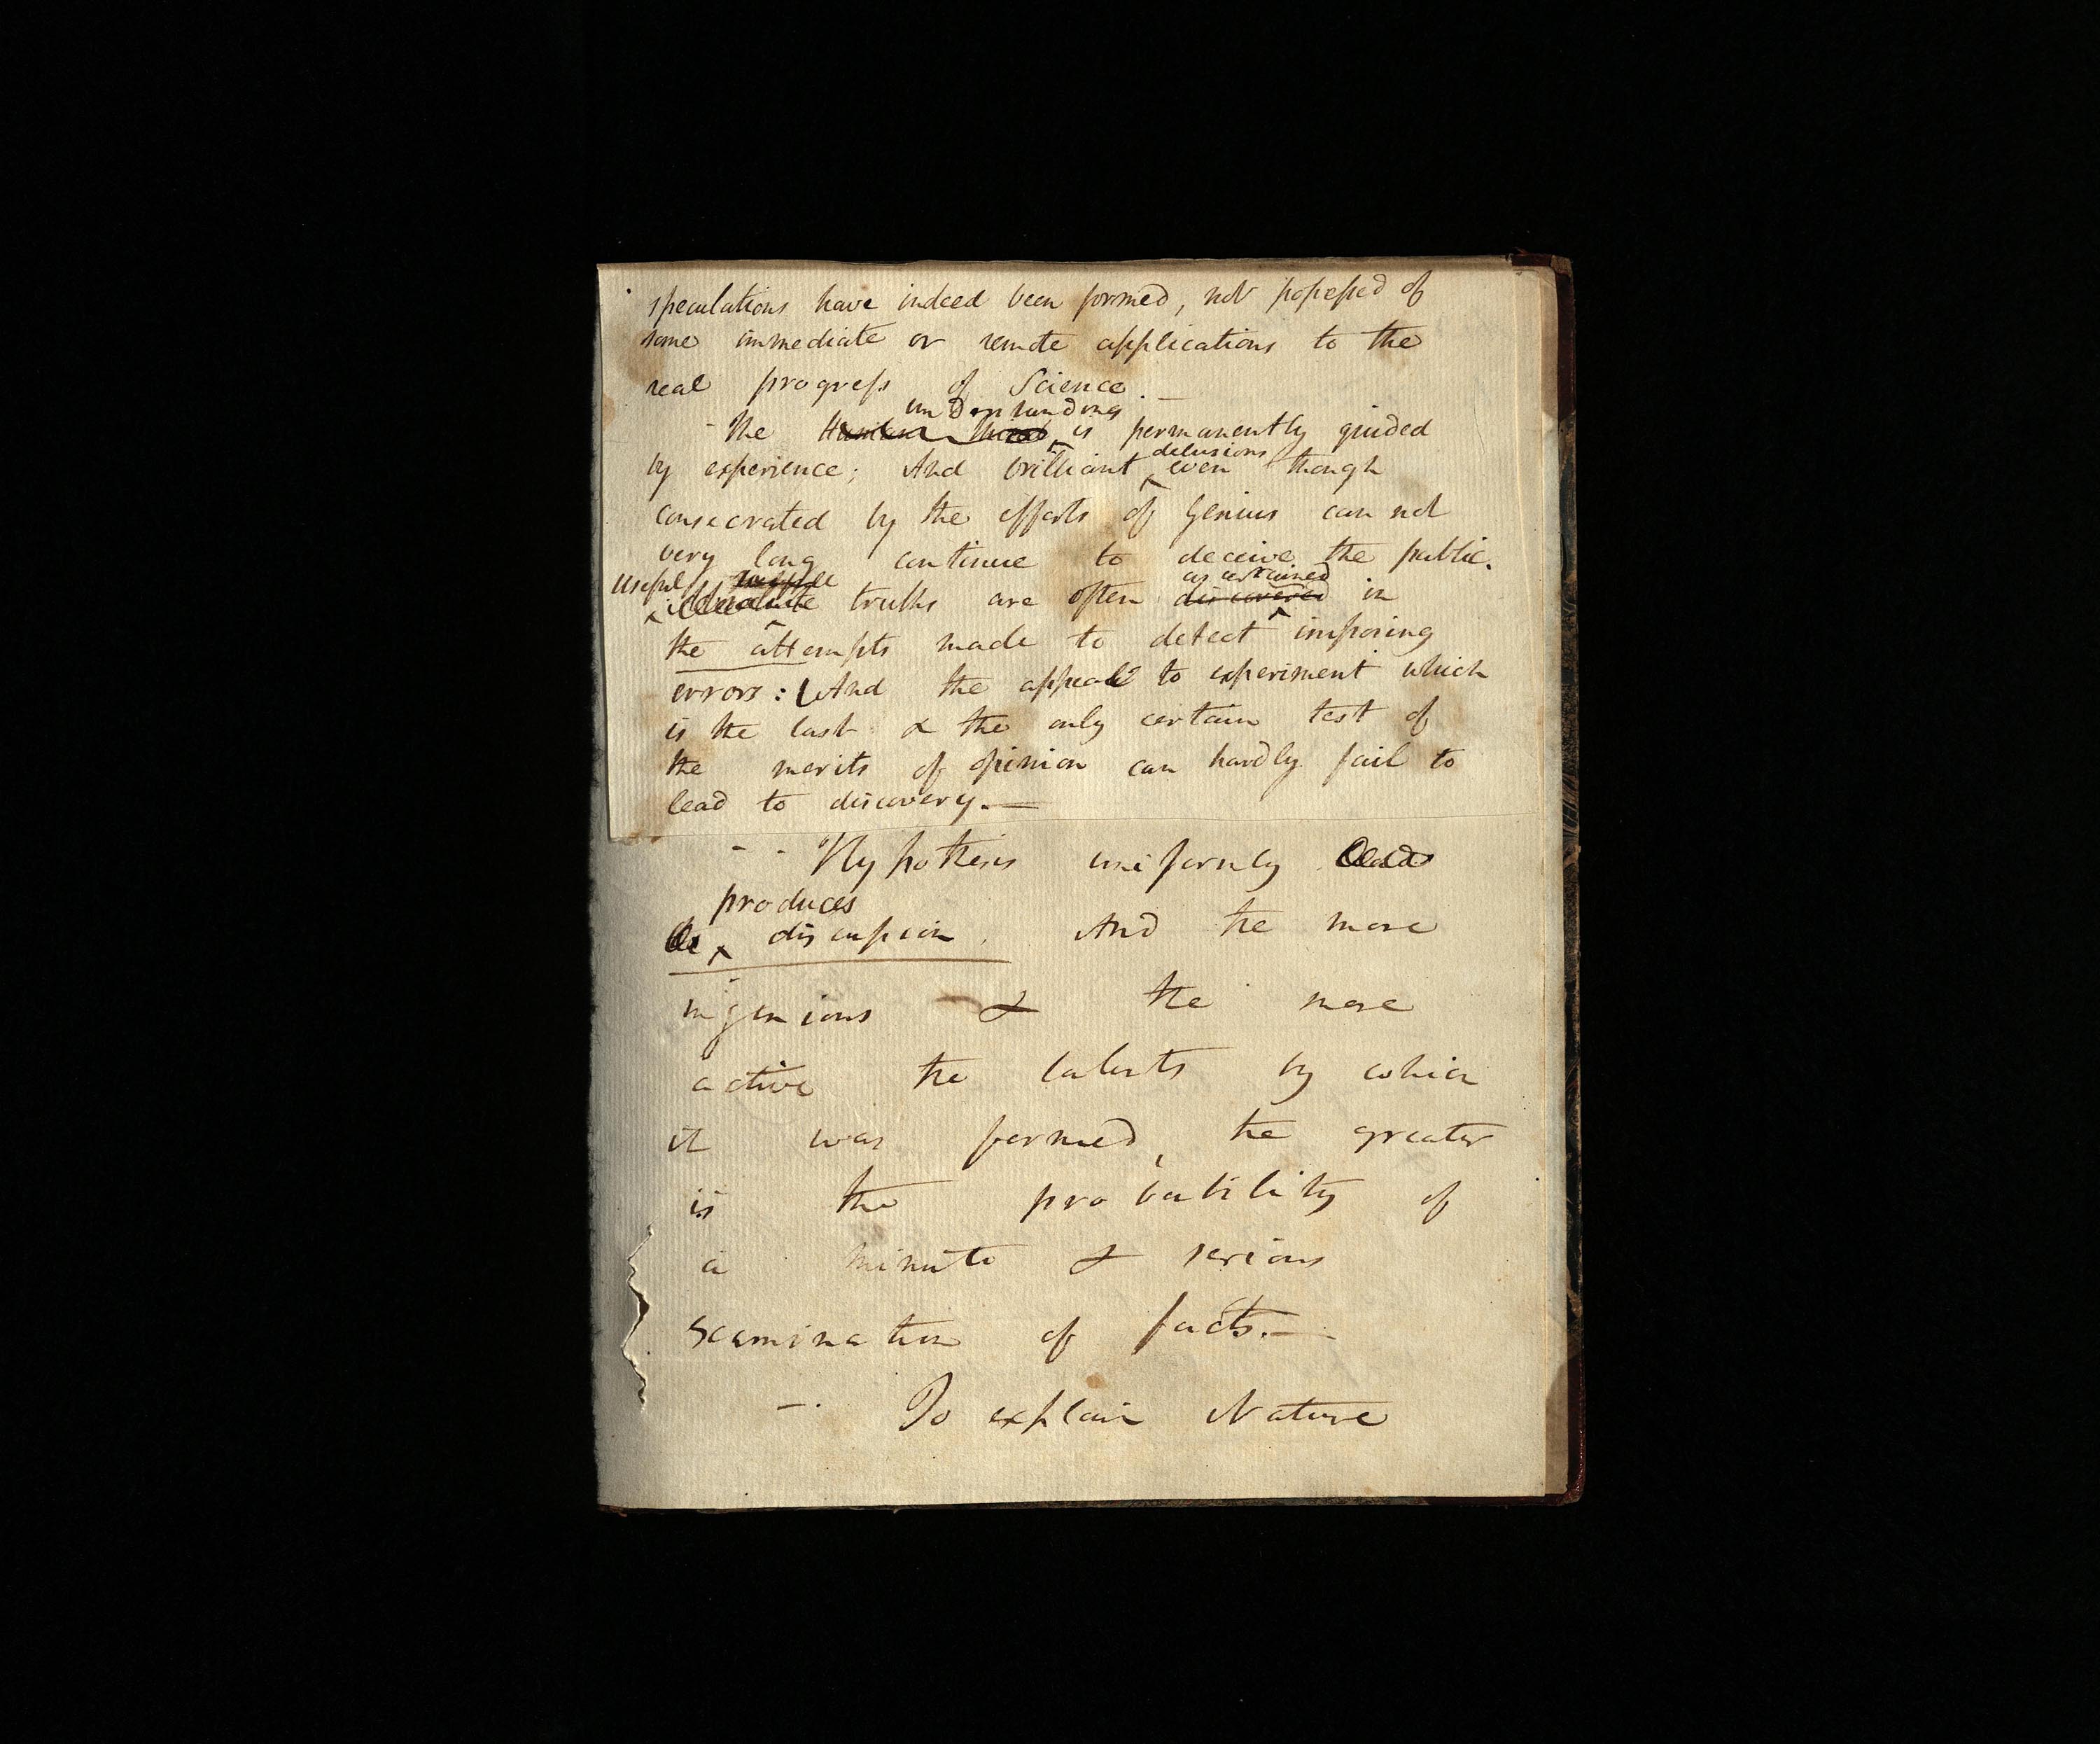 speculations have indeed been formed, not possessed of
some immediate or remote applications to the
real progress of Science. —
understanding
- The Human Mind is permanently guided
delusions
by experience; And brilliant ^ even though
consecrated by the efforts of Genius can not
very long continue to deceive the public.
Useful ascertained
^ truths are often discovered in
the attempts made to detect ^ imposing
errors: And the appeal to experiment which
is the last & the only certain test of
the merits of opinion can hardly fail to
lead to discovery. —
- - Hypothesis uniformly leads
produces
^ discussion. And the more
ingenious & the more
active the talents by which
it was formed, the greater
is the probability of
a minute & serious
examination of facts. —
-. To explain Nature